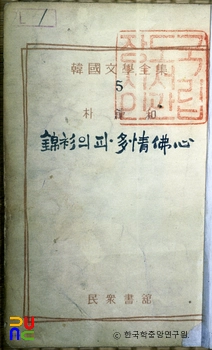 1
韓國文學全集
5
朴鍾和
錦衫의 피·多情佛心
民衆書舘
한국학중앙연구원